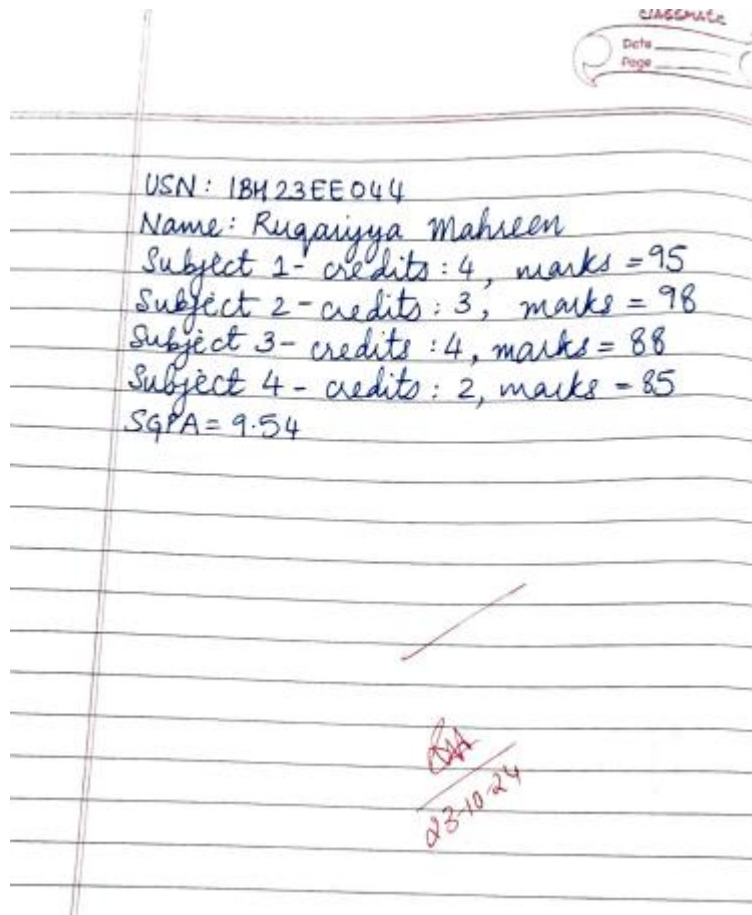 classmate
Date
Page
USN: 1BM23EE044
Name: Ruqaiyya Mahreen
Subject 1- credits: 4, marks = 95
Subject 2 - credits: 3, marks = 98
Subject 3 - credits : 4, marks = 88
Subject 4 - credits: 2, marks = 85
SGPA = 9.54
23-10-24